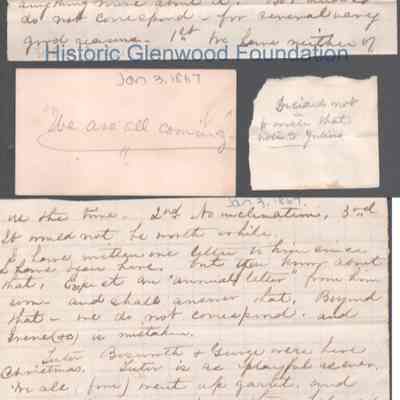 anything more about it.
do not correspond - for several very
good reasons. 1st We have neither of
Historic Glenwood Foundation
Jan 3, 1867
"We are all coming"
Decided not
to write that
Jan 3, 1867.
us the time. 2nd No inclination, 3rd
It would not be worth while.
I have written one letter to him since
I have been here. but then know about
that, Expect an "annual letter" from him
come and shall answer that, Beyond
that - we do not correspond. and
Irene is mistaken.
Sister Bosworth & George were here
Christmas. Sister is as playful as ever.
We all (four) went up garret, and